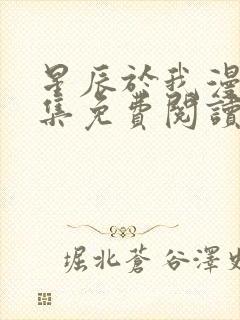 星辰於我漫
集免費閱讀
堀北蒼谷澤